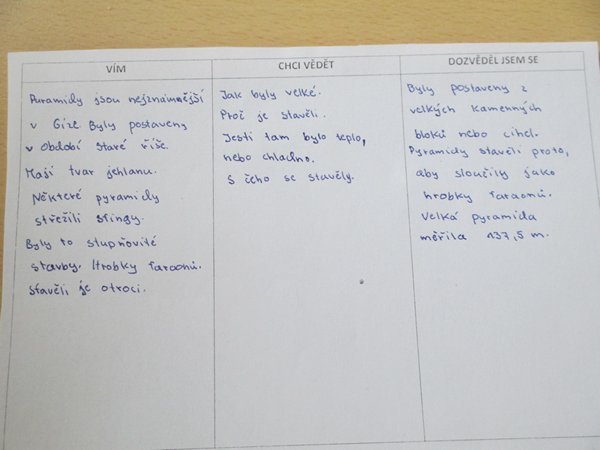 VÍM
Pyramidy jsou nejznámnější
v Gíze. Byly postaveny
v Období Staré říše.
Mají tvar jehlanu.
Některé pyramidy
střežili sfingy.
Byly to stupňovité
stavby. Hrobky faraonů.
Stavěli je otroci.
CHCI VĚDĚT
Jak byly velké.
Proč je stavěli.
Jesti tam bylo teplo,
nebo chladno.
S čeho se stavěly.
DOZVĚDĚL JSEM SE
Byly postaveny z
velkých kamenných
bloků nebo cihel.
Pyramidy stavěli proto,
aby sloužily jako
hrobky faraonů.
Velká pyramida
měřila 137,5 m.